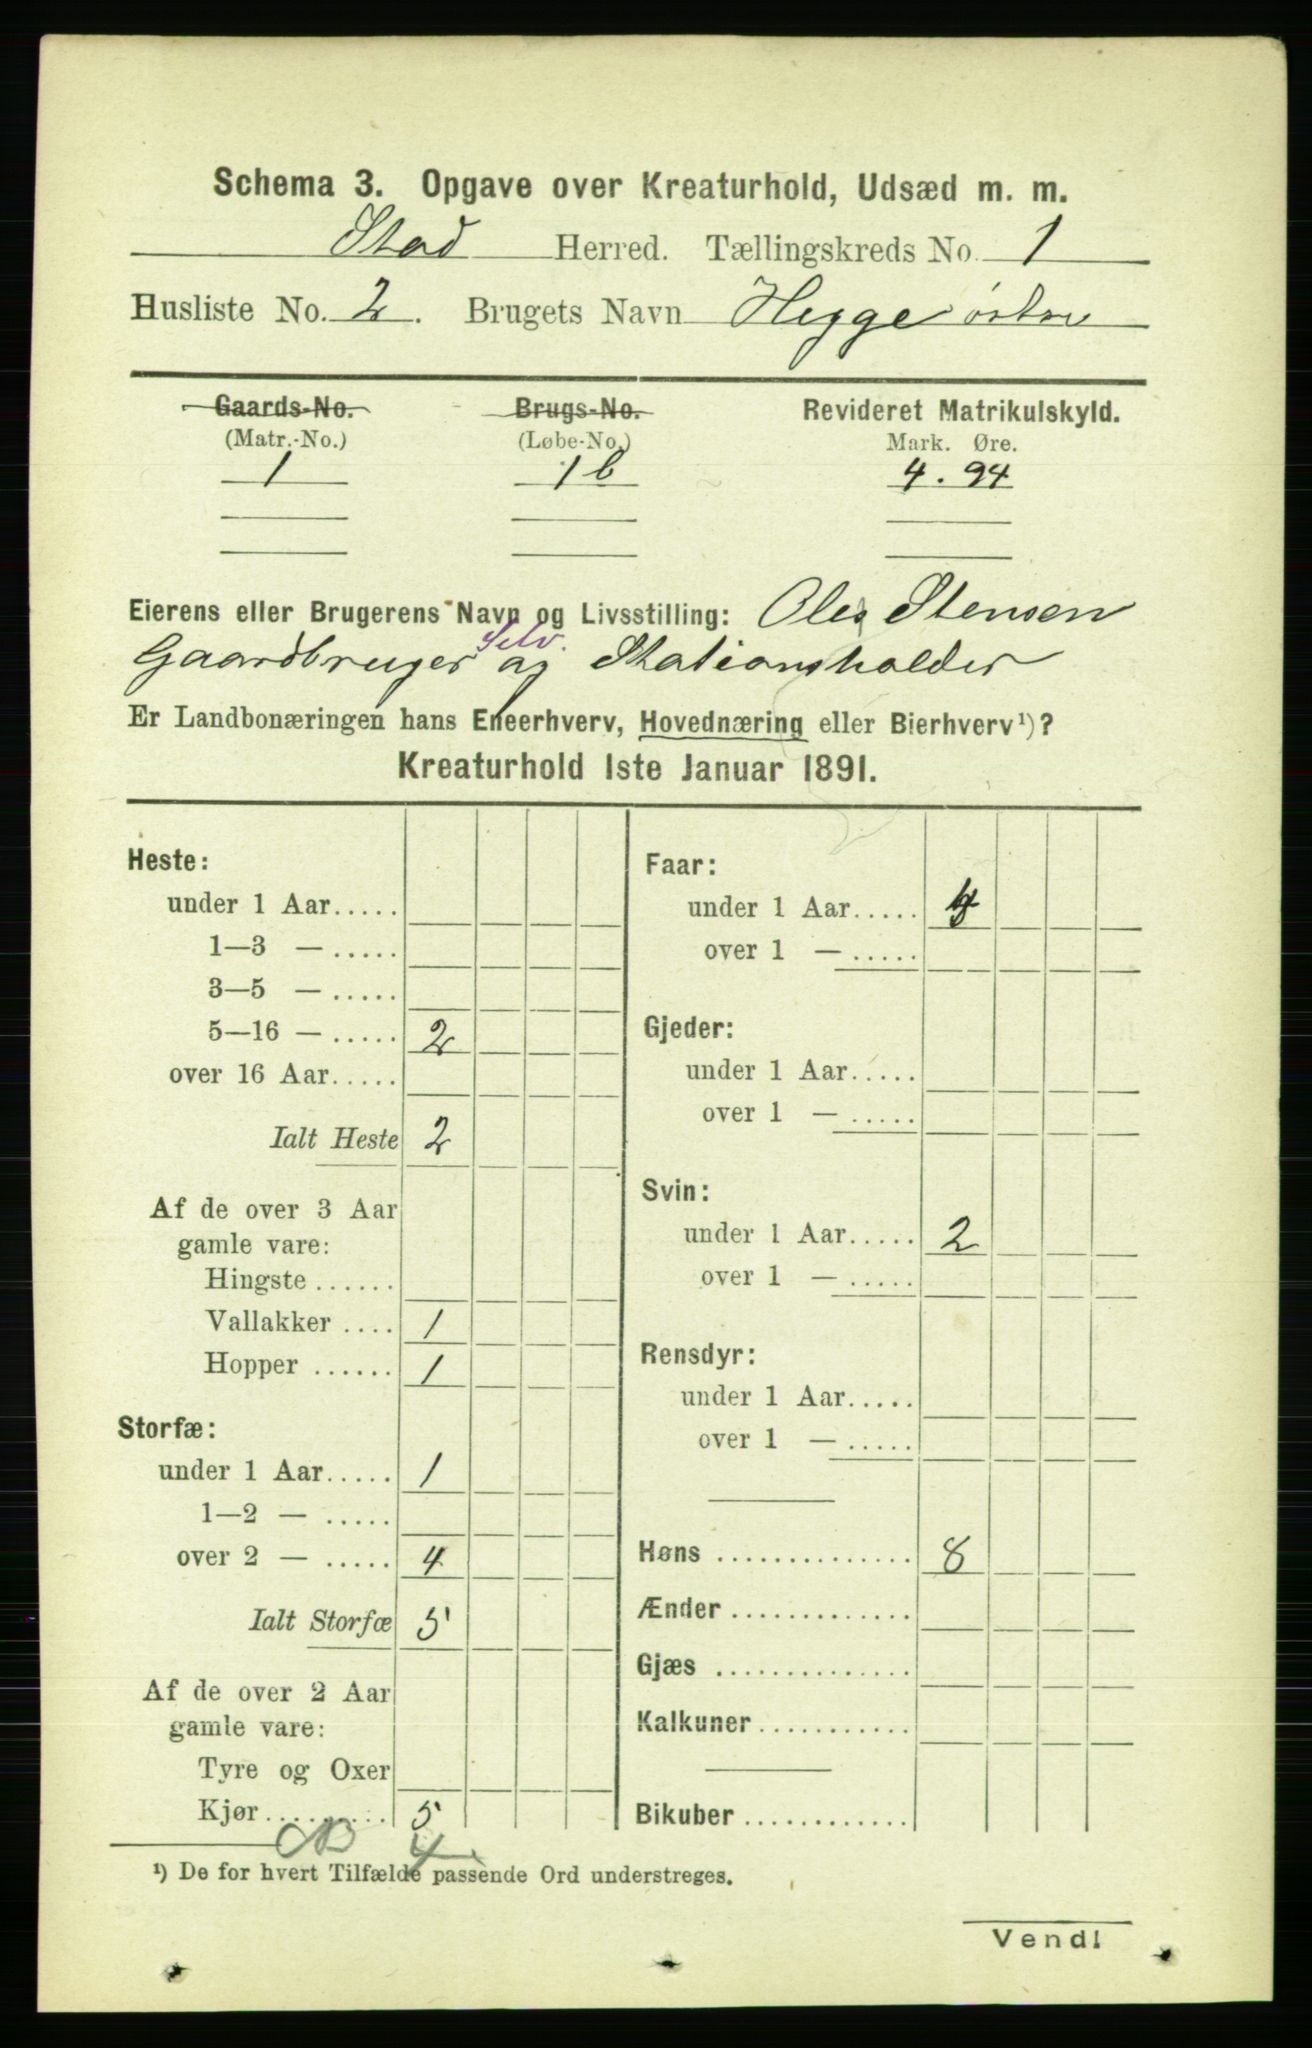 Schema 3. Opgave over Kreaturhold, Udsæd m. m.
Stod Herred. Tællingskreds No. 1
Husliste No. 2. Brugets Navn Hegge östre
Gaards-No. Brugs-No. Revideret Matrikulskyld.
(Matr.-No.) (Løbe-No.) Mark. Øre.
1 1 b 4.94
Eierens eller Brugerens Navn og Livsstilling: Ole Stensen
Selv.
Gaardbruger og Stationsholder
Er Landbonæringen hans Eneerhverv, Hovednæring eller Bierhverv¹)?
Kreaturhold 1ste Januar 1891.
Heste:
under 1 Aar.....
1—3 — .....
3—5 — .....
5—16 — ..... 2
over 16 Aar.....
Ialt Heste 2
Af de over 3 Aar
gamle vare:
Hingste ......
Vallakker .... 1
Hopper ...... 1
Storfæ:
under 1 Aar..... 1
1—2 — .....
over 2 — ..... 4
Ialt Storfæ 5
Af de over 2 Aar
gamle vare:
Tyre og Oxer
Kjør.......... 5
4
Faar:
under 1 Aar.....
over 1 — .....
Gjeder:
under 1 Aar.....
over 1 — .....
Svin:
under 1 Aar..... 2
over 1 — .....
Rensdyr:
under 1 Aar.....
over 1 — .....
Høns .............. 8
Ænder .............
Gjæs ..............
Kalkuner...........
Bikuber ............
¹) De for hvert Tilfælde passende Ord understreges.
Vend!